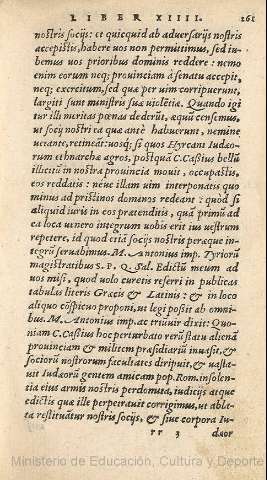 LIBER XIIII. 261
nostris socijs: et quicquid ab aduersarijs nostris
accepistis, habere uos non permittimus, sed iu-
bemus uos prioribus dominis reddere: nemo
enim eorum neq; prouinciam à senatu accepit,
neq; exercitum, sed quæ per uim corripuerunt,
largiti sunt ministris suæ uiolētiæ. Quando igi
tur illi meritas pœnas dederūt, æquū censemus,
ut socij nostri ea quæ antè habuerunt, nemine
uetante, retineāt: uosq; si quos Hyrcani Iudæo-
rum ethnarchæ agros, postquā C. Cassius bellū
illicitū in nostra prouincia mouit, occupastis,
eos reddatis: neue illam uim interponatis quo
minus ad pristinos dominos redeant: quòd si
aliquid iuris in eos prætenditis, quā primū ad
ea loca uenero integrum uobis erit ius uestrum
repetere, id quod etiā socijs nostris peræque in-
tegrū seruabimus. M. Antonius imp. Tyriorū
magistratibus S. P. Q. Sal. Edictū meum ad
uos misi, quod uolo curetis referri in publicas
tabulas literis Græcis & Latinis: & in loco
aliquo cōspicuo proponi, ut legi possit ab omni-
bus. M. Antonius imp. ac triūuir dixit: Quo-
niam C. Cassius hoc perturbato rerū statu alienā
prouinciam & militem præsidiariū inuasit, &
sociorū nostrorum facultates diripuit, & uasta-
uit Iudæorū gentem amicam pop. Rom. insolen-
tia eius armis nostris perdomita, iudicijs atque
edictis quæ ille perpetrauit corrigimus, ut abla-
ta restituātur nostris socijs, & siue corpora Iu-
rr 3 dæor
Ministerio de Educación, Cultura y Deporte